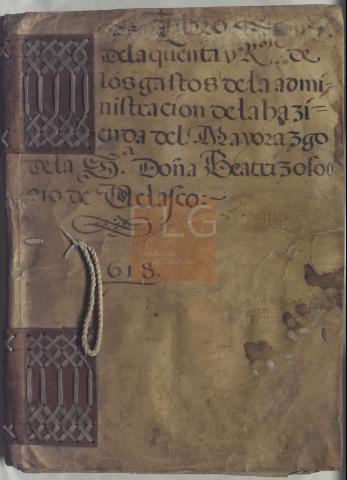 Libro
de la quenta y Ron. de
los gastos de la admi-
nistracion de la hazi-
enda del Mayorazgo
de la S.ª Doña Beatriz oso
rio de Velasco:~
618.
FLG
Fundación